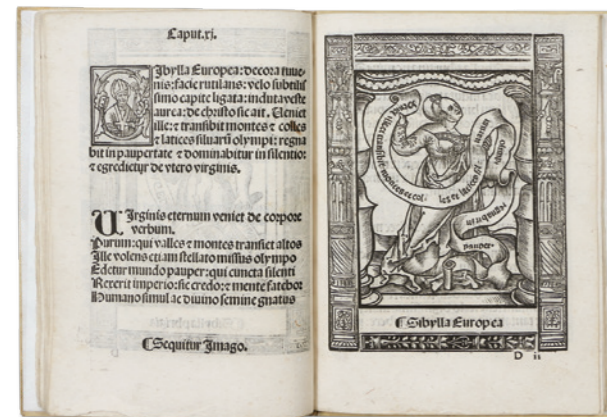 Caput.xj.
Sibylla Europea: decora iuue-
nis: facie rutilans: velo subtilis
simo capite ligata: induta veste
aurea: de christo sic ait. Ueniet
ille: et transibit montes et colles
et latices siluarũ olympi: regna
bit in paupertate et dominabitur in silentio:
et egredietur de vtero virginis.
Uirginis eternum veniet de corpore
verbum.
Purum: qui valles et montes transiet altos
Ille volens etiam stellato missus olympo
Edetur mundo pauper: qui cuncta silenti
Rexerit imperio: sic credo: et mente fatebor
Humano simul ac diuino semine gnatus
❡Sequitur Imago.
❡Sibylla Europea
D ii